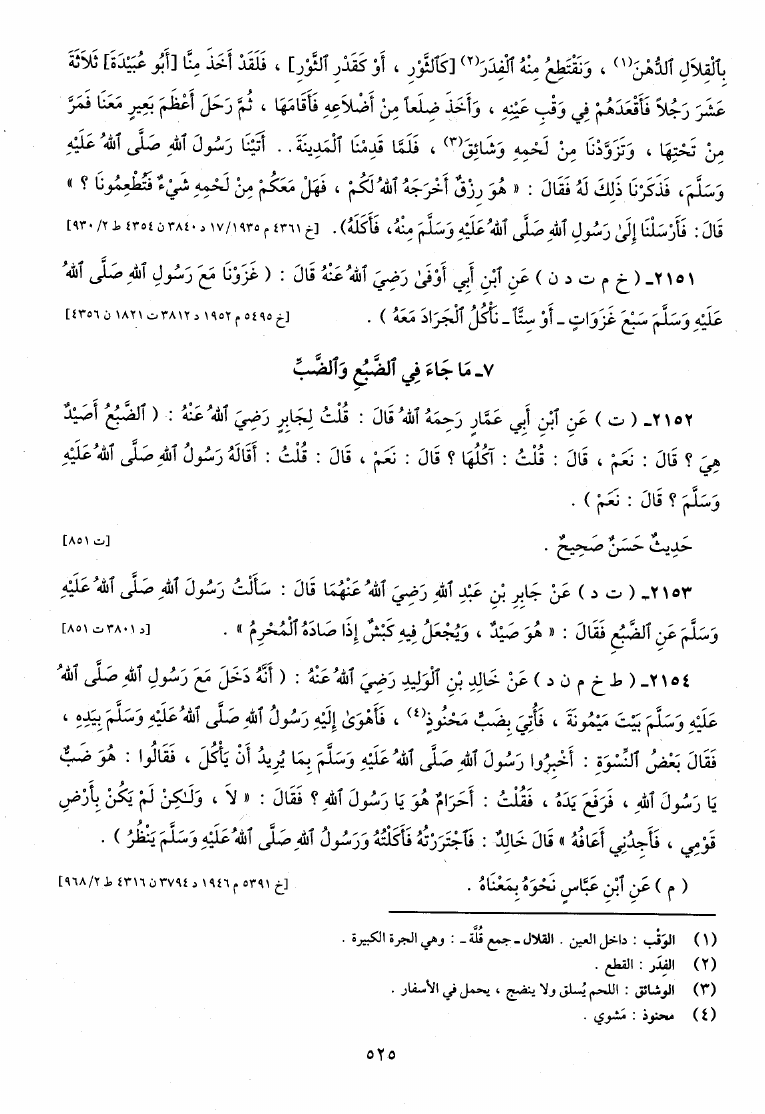 بِٱلْقِلَالِ ٱلدُّهْنَ(١) ، وَنَقْتَطِعُ مِنْهُ ٱلْفِدَرَ(٢) [كَٱلثَّوْرِ ، أَوْ كَقَدْرِ ٱلثَّوْرِ] ، فَلَقَدْ أَخَذَ مِنَّا [أَبُو عُبَيْدَةَ] ثَلاَثَةَ
عَشَرَ رَجُلاً فَأَقْعَدَهُمْ فِي وَقْبِ عَيْنِهِ ، وَأَخَذَ ضِلَعاً مِنْ أَضْلاَعِهِ فَأَقَامَهَا ، ثُمَّ رَحَلَ أَعْظَمَ بَعِيرٍ مَعَنَا فَمَرَّ
مِنْ تَحْتِهَا ، وَتَزَوَّدْنَا مِنْ لَحْمِهِ وَشَائِقَ(٣) ، فَلَمَّا قَدِمْنَا ٱلْمَدِينَةَ. . أَتَيْنَا رَسُولَ ٱللهِ صَلَّى ٱللهُ عَلَيْهِ
وَسَلَّمَ، فَذَكَرْنَا ذَلِكَ لَهُ فَقَالَ : « هُوَ رِزْقٌ أَخْرَجَهُ ٱللهُ لَكُمْ ، فَهَلْ مَعَكُمْ مِنْ لَحْمِهِ شَيْءٌ فَتُطْعِمُونَا ؟ »
قَالَ: فَأَرْسَلْنَا إِلَىٰ رَسُولِ ٱللهِ صَلَّى ٱللهُ عَلَيْهِ وَسَلَّمَ مِنْهُ، فَأَكَلَهُ). [خ ٤٣٦١ م ١٧/١٩٣٥ د ٣٨٤٠ ن ٤٣٥٤ ط ٩٣٠/٢]
٢١٥١ـ ( خ م ت د ن ) عَنِ ٱبْنِ أَبِي أَوْفَىٰ رَضِيَ ٱللهُ عَنْهُ قَالَ : ( غَزَوْنَا مَعَ رَسُولِ ٱللهِ صَلَّى ٱللهُ
عَلَيْهِ وَسَلَّمَ سَبْعَ غَزَوَاتٍ ـ أَوْ سِتّاً ـ نَأْكُلُ ٱلْجَرَادَ مَعَهُ ) . [خ ٥٤٩٥ م ١٩٥٢ د ٣٨١٢ ت ١٨٢١ ن ٤٣٥٦]
٧ـ مَا جَاءَ فِي ٱلضَّبُعِ وَٱلضَّبِّ
٢١٥٢ـ ( ت ) عَنِ ٱبْنِ أَبِي عَمَّارٍ رَحِمَهُ ٱللهُ قَالَ : قُلْتُ لِجَابِرٍ رَضِيَ ٱللهُ عَنْهُ : ( ٱلضَّبُعُ أَصَيْدٌ
هِيَ ؟ قَالَ : نَعَمْ ، قَالَ : قُلْتُ : آكُلُهَا ؟ قَالَ : نَعَمْ ، قَالَ : قُلْتُ : أَقَالَهُ رَسُولُ ٱللهِ صَلَّى ٱللهُ عَلَيْهِ
وَسَلَّمَ ؟ قَالَ : نَعَمْ ) .
حَدِيثٌ حَسَنٌ صَحِيحٌ . [ت ٨٥١]
٢١٥٣ـ ( ت د ) عَنْ جَابِرِ بْنِ عَبْدِ ٱللهِ رَضِيَ ٱللهُ عَنْهُمَا قَالَ : سَأَلْتُ رَسُولَ ٱللهِ صَلَّى ٱللهُ عَلَيْهِ
وَسَلَّمَ عَنِ ٱلضَّبُعِ فَقَالَ : « هُوَ صَيْدٌ ، وَيُجْعَلُ فِيهِ كَبْشٌ إِذَا صَادَهُ ٱلْمُحْرِمُ » . [د ٣٨٠١ ت ٨٥١]
٢١٥٤ـ ( ط خ م ن د ) عَنْ خَالِدِ بْنِ ٱلْوَلِيدِ رَضِيَ ٱللهُ عَنْهُ : ( أَنَّهُ دَخَلَ مَعَ رَسُولِ ٱللهِ صَلَّى ٱللهُ
عَلَيْهِ وَسَلَّمَ بَيْتَ مَيْمُونَةَ ، فَأُتِيَ بِضَبٍّ مَحْنُوذٍ(٤) ، فَأَهْوَىٰ إِلَيْهِ رَسُولُ ٱللهِ صَلَّى ٱللهُ عَلَيْهِ وَسَلَّمَ بِيَدِهِ ،
فَقَالَ بَعْضُ ٱلنِّسْوَةِ : أَخْبِرُوا رَسُولَ ٱللهِ صَلَّى ٱللهُ عَلَيْهِ وَسَلَّمَ بِمَا يُرِيدُ أَنْ يَأْكُلَ ، فَقَالُوا : هُوَ ضَبٌّ
يَا رَسُولَ ٱللهِ ، فَرَفَعَ يَدَهُ ، فَقُلْتُ : أَحَرَامٌ هُوَ يَا رَسُولَ ٱللهِ ؟ فَقَالَ : « لاَ ، وَلَـٰكِنْ لَمْ يَكُنْ بِأَرْضِ
قَوْمِي ، فَأَجِدُنِي أَعَافُهُ » قَالَ خَالِدٌ : فَٱجْتَرَرْتُهُ فَأَكَلْتُهُ وَرَسُولُ ٱللهِ صَلَّى ٱللهُ عَلَيْهِ وَسَلَّمَ يَنْظُرُ ) .
( م ) عَنِ ٱبْنِ عَبَّاسٍ نَحْوَهُ بِمَعْنَاهُ . [خ ٥٣٩١ م ١٩٤٦ د ٣٧٩٤ ن ٤٣١٦ ط ٩٦٨/٢]
(١) الوَقْب : داخل العين . القلال ـ جمع قُلَّة ـ : وهي الجرة الكبيرة .
(٢) الفِدَر : القطع .
(٣) الوشائق : اللحم يُسلق ولا ينضج ، يحمل في الأسفار .
(٤) محنوذ : مَشوي .
٥٢٥